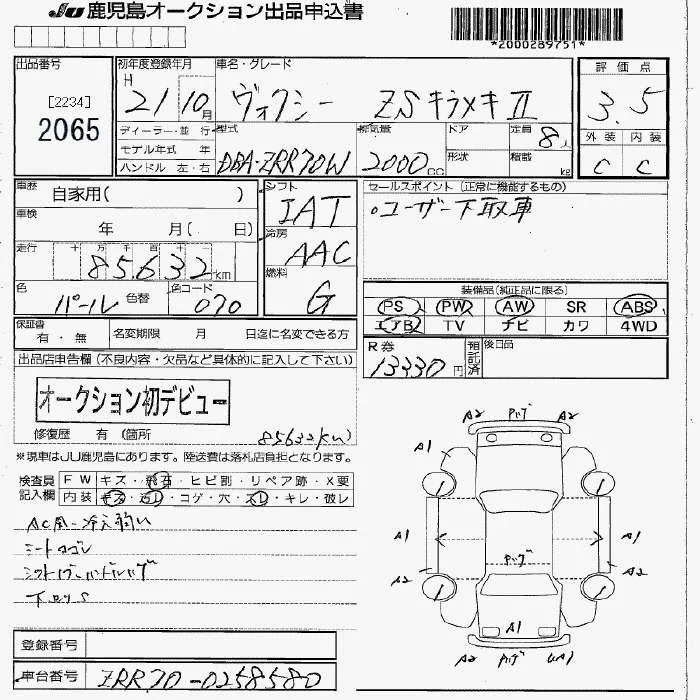 JU 鹿児島オークション出品申込書
*2000289751*
出品番号
[2234]
2065
初年度登録年月
H
21 10月
車名・グレード
ヴォクシー ZSキラメキⅡ
評価点
3.5
外装 内装
C C
ディーラー・並 行
モデル年式 年
ハンドル 左・右
型式
DBA-ZRR70W
排気量
2000cc
ドア
形状
定員
8人
積載
kg
車歴
自家用( )
車検
年 月( 日)
走行
十 万 千 百 十
85632km
色
パール
色替
色コード
070
シフト
IAT
冷房
AAC
燃料
G
セールスポイント (正常に機能するもの)
○ユーザー下取車
装備品(純正品に限る)
PS PW AW SR ABS
エアB TV ナビ カワ 4WD
保証書
有・無
名変期限 月 日迄に名変できる方
R券
13330円
預託済
後日品
出品店申告欄(不良内容・欠品など具体的に記入して下さい)
オークション初デビュー
修復歴 有 (箇所
85632km)
※現車はJU鹿児島にあります。陸送費は落札店負担となります。
検査員記入欄
FW キズ・飛石・ヒビ割・リペア跡・X要
内装 キズ・汚レ・コゲ・穴・スレ・キレ・破レ
シートヨゴレ
登録番号
車台番号
ZRR70-0258580
A2 A2
A1
A1 A1
A2 A2
A1
A2